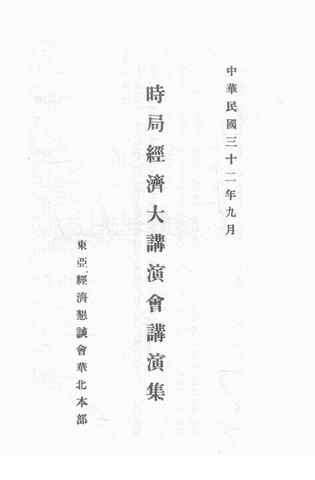 中華民國三十二年九月
時局經濟大講演會講演集
東亞經濟懇談會華北本部